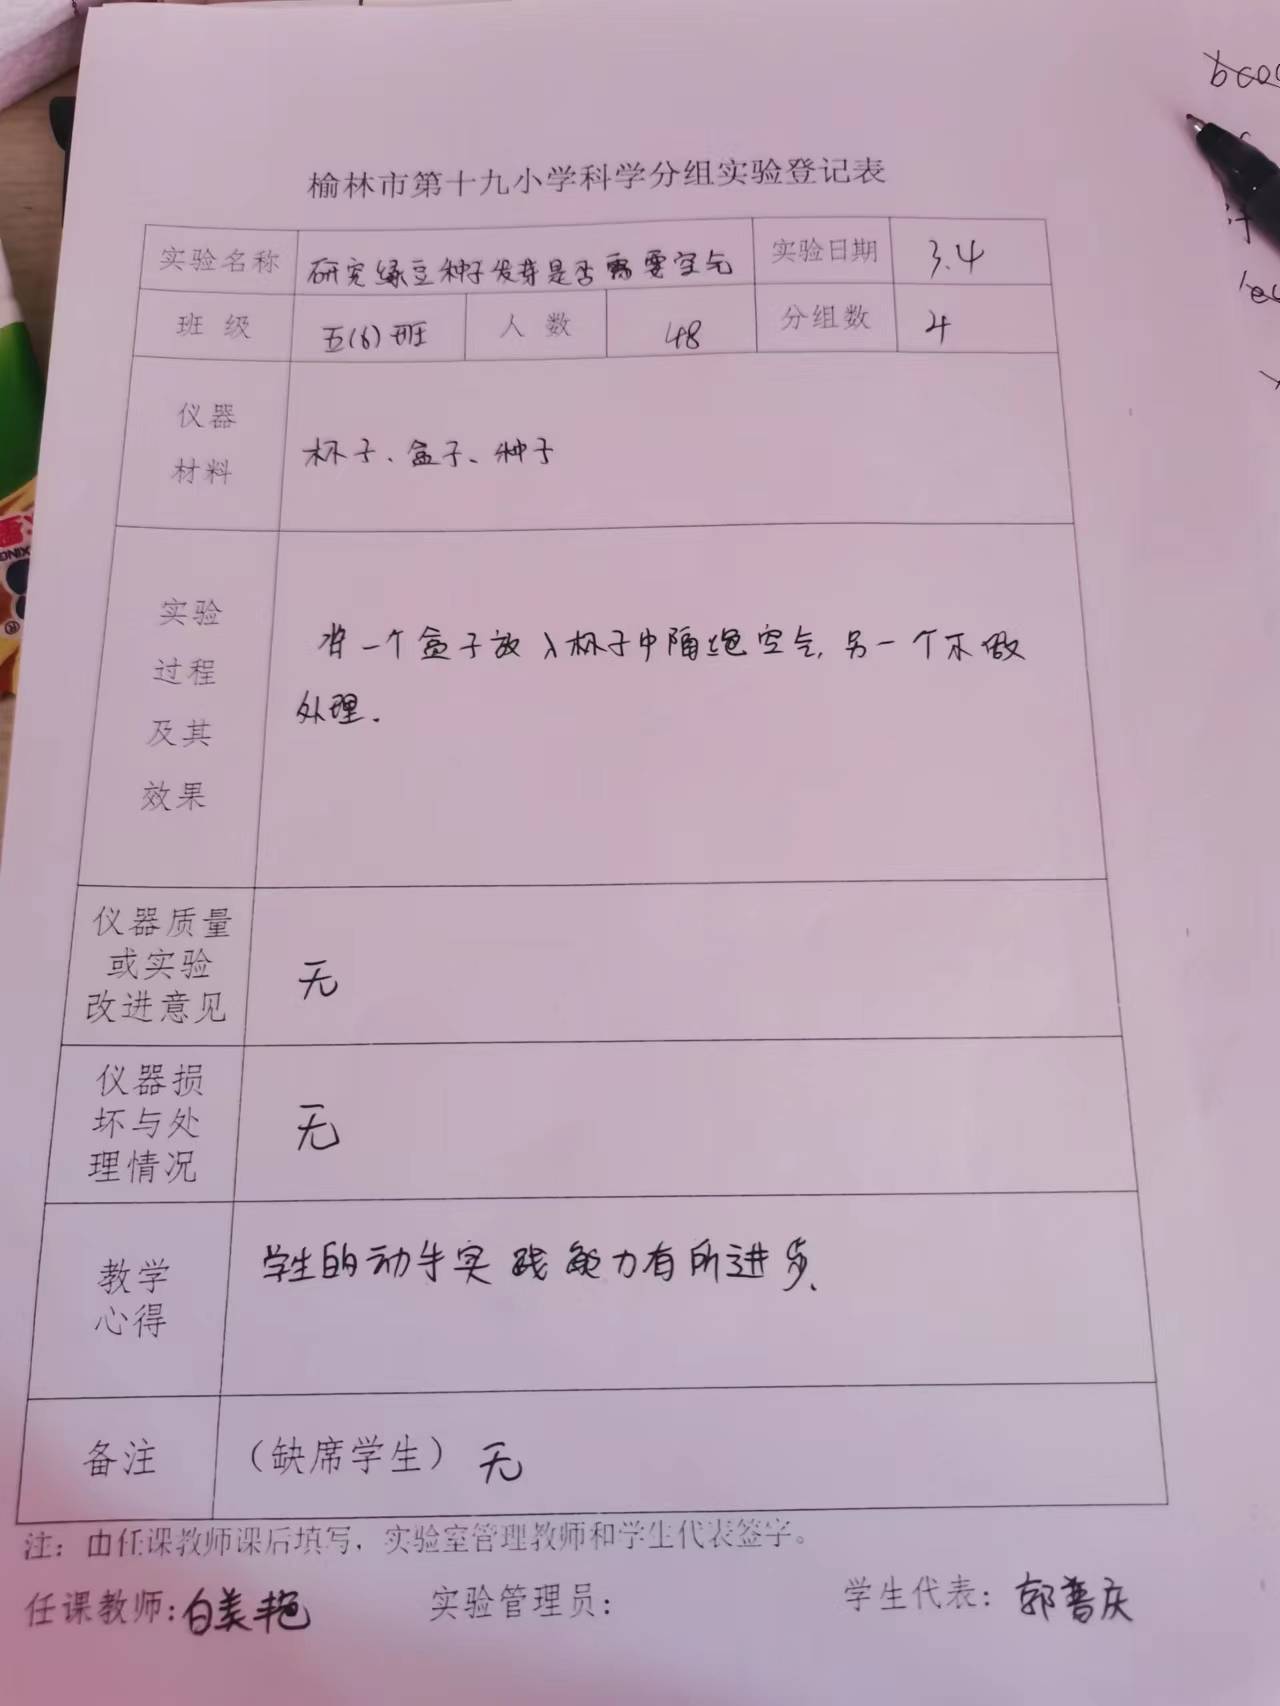 榆林市第十九小学科学分组实验登记表
实验名称 研究绿豆种子发芽是否需要空气 实验日期 3.4
班 级 五(6)班 人 数 48 分组数 4
仪器
材料
杯子、盒子、种子
实验
过程
及其
效果
将一个盒子放入杯子中隔绝空气,另一个不做
处理.
仪器质量
或实验
改进意见
无
仪器损
坏与处
理情况
无
教学
心得
学生的动手实践能力有所进步、
备注 (缺席学生) 无
注:由任课教师课后填写,实验室管理教师和学生代表签字。
任课教师:白美艳 实验管理员: 学生代表:郭普庆